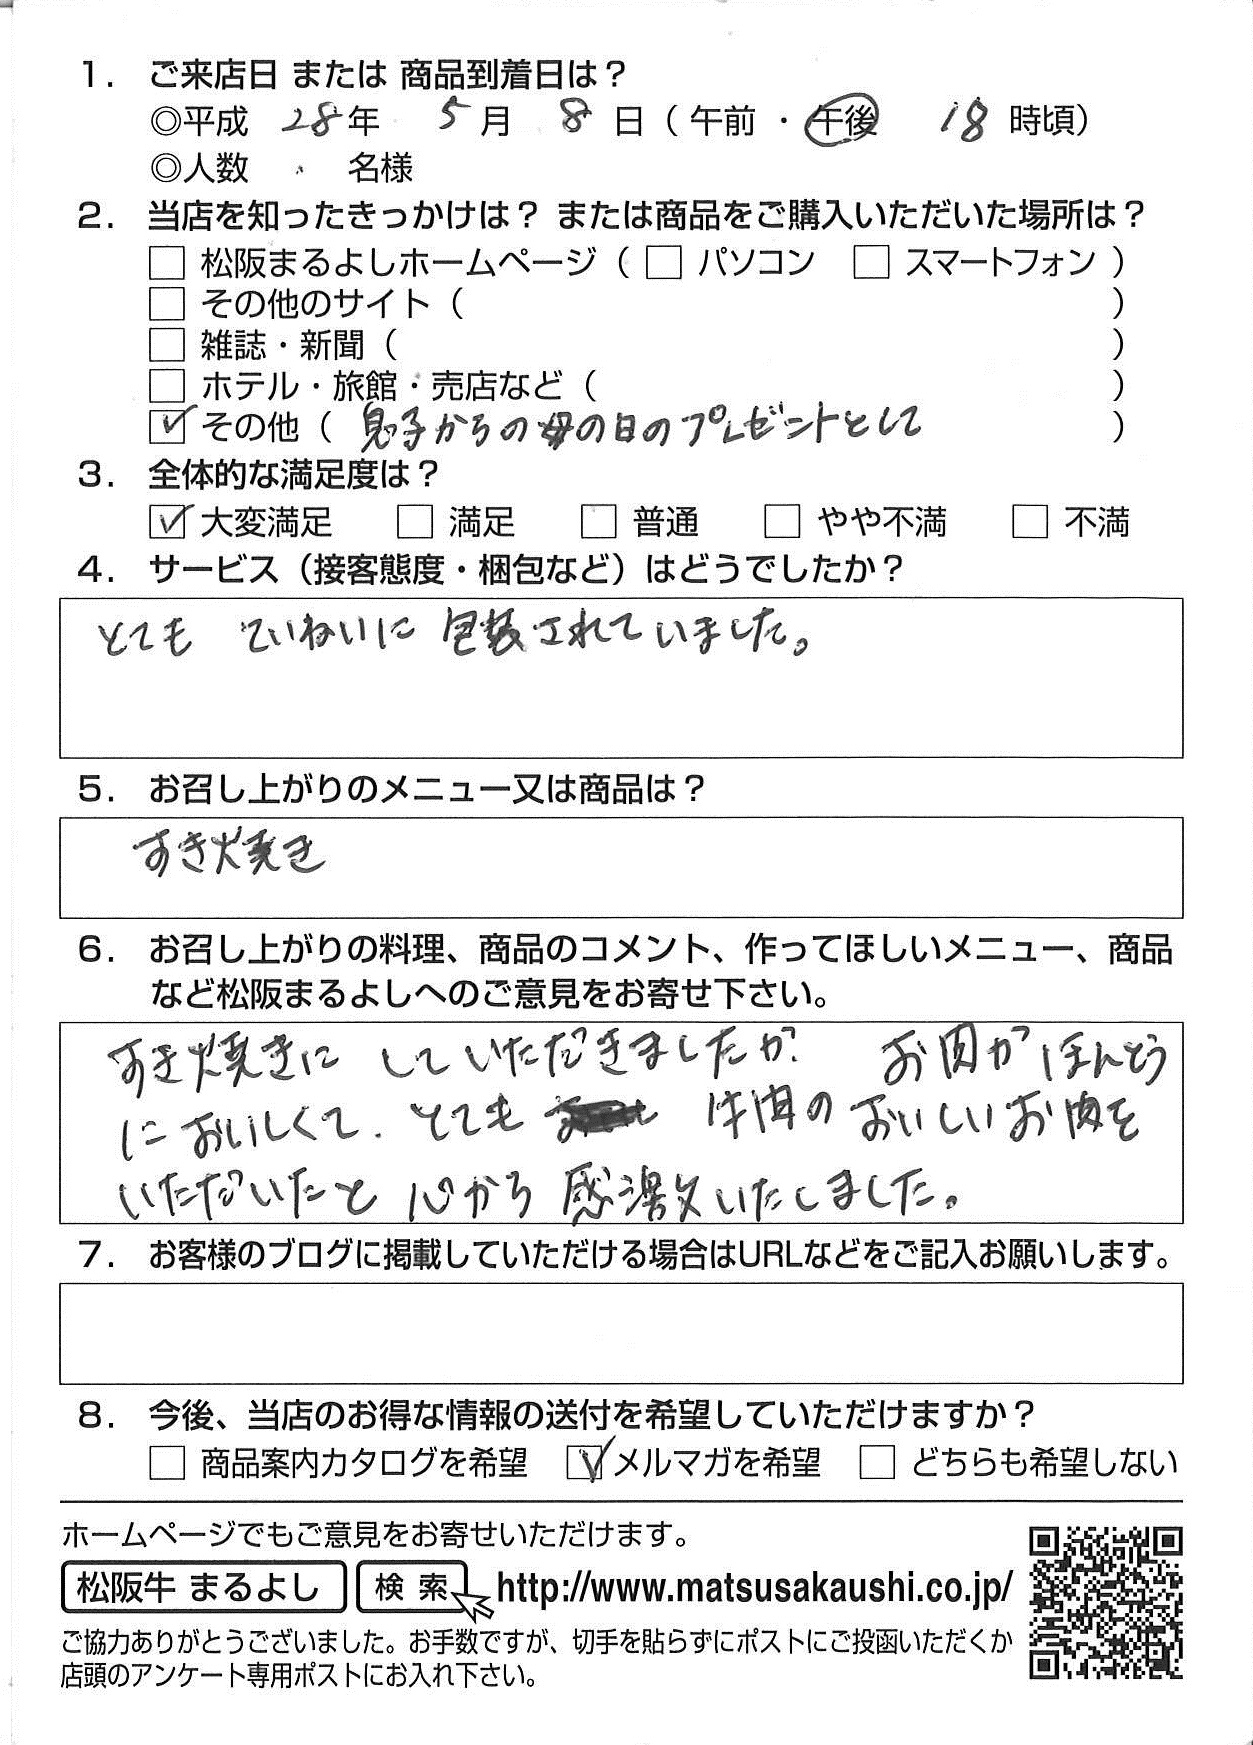 1. ご来店日 または 商品到着日は？
◎平成 28年 5月 8日（午前・午後 18時頃）
◎人数 名様
2. 当店を知ったきっかけは？ または商品をご購入いただいた場所は？
□ 松阪まるよしホームページ（ □ パソコン □ スマートフォン ）
□ その他のサイト（ ）
□ 雑誌・新聞（ ）
□ ホテル・旅館・売店など（ ）
☑ その他（ 息子からの母の日のプレゼントとして ）
3. 全体的な満足度は？
☑ 大変満足 □ 満足 □ 普通 □ やや不満 □ 不満
4. サービス（接客態度・梱包など）はどうでしたか？
とても ていねいに 包装されていました。
5. お召し上がりのメニュー又は商品は？
すき焼き
6. お召し上がりの料理、商品のコメント、作ってほしいメニュー、商品
など松阪まるよしへのご意見をお寄せ下さい。
すき焼きに していただきましたが、 お肉がほんとう
においしくて、とても 牛肉の おいしいお肉を
いただいたと 心から 感激いたしました。
7. お客様のブログに掲載していただける場合はURLなどをご記入お願いします。
8. 今後、当店のお得な情報の送付を希望していただけますか？
□ 商品案内カタログを希望 ☑ メルマガを希望 □ どちらも希望しない
ホームページでもご意見をお寄せいただけます。
松阪牛 まるよし 検索 http://www.matsusakaushi.co.jp/
ご協力ありがとうございました。お手数ですが、切手を貼らずにポストにご投函いただくか
店頭のアンケート専用ポストにお入れ下さい。